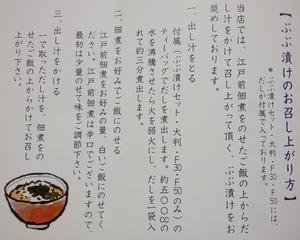 【ぶぶ漬けのお召し上がり方】
＊ぶぶ漬けセット・大判・F30・F50には、
だしが付属で入っております。
当店では、江戸前佃煮をのせたご飯の上からだ
し汁をかけて召し上がって頂く、ぶぶ漬けをお
奨めしております。
一、出し汁をとる
付属（ぶぶ漬けセット・大判・F30・F50のみ）の
ティーバッグでだしを煮出します。約五〇〇ccの
水を沸騰させたら火を弱火にし、だしを一袋入
れて約三分煮出します。
二、佃煮をお好みでご飯にのせる
江戸前佃煮をお好みの量、白いご飯にのせてく
ださい。江戸前佃煮は辛口でございますので、
最初は少量のせて味をご調節下さい。
三、出し汁をかける
一で取っただし汁を、佃煮をの
せたご飯の上からかけてお召し
上がり下さい。